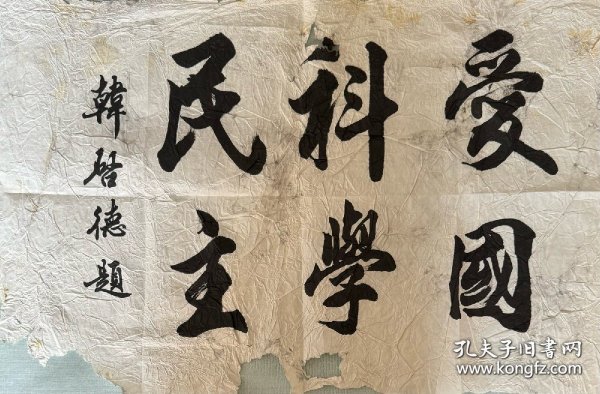 愛國
科學
民主
韓啓德題
孔夫子旧书网
www.kongfz.com